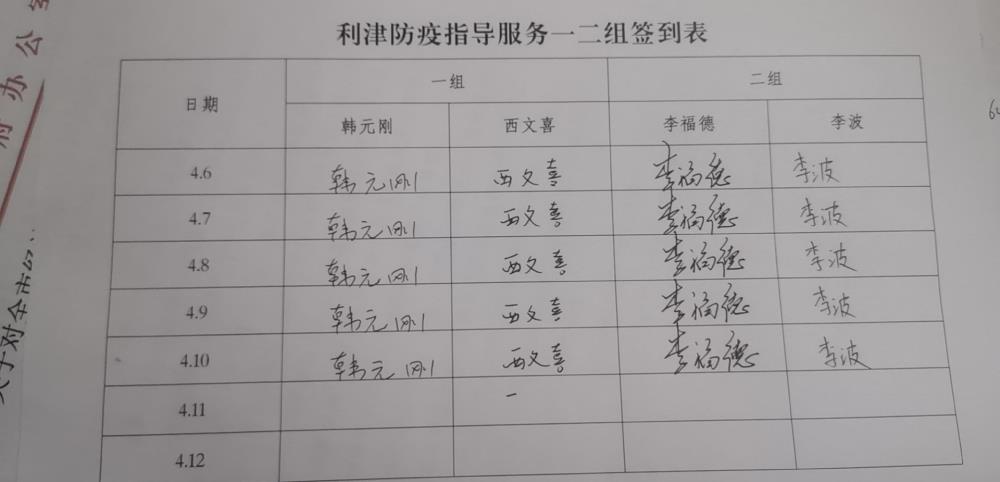 利津防疫指导服务一二组签到表
日期 一组 二组
韩元刚 西文喜 李福德 李波
4.6 韩元刚 西文喜 李福德 李波
4.7 韩元刚 西文喜 李福德 李波
4.8 韩元刚 西文喜 李福德 李波
4.9 韩元刚 西文喜 李福德 李波
4.10 韩元刚 西文喜 李福德 李波
4.11 一
4.12
办公